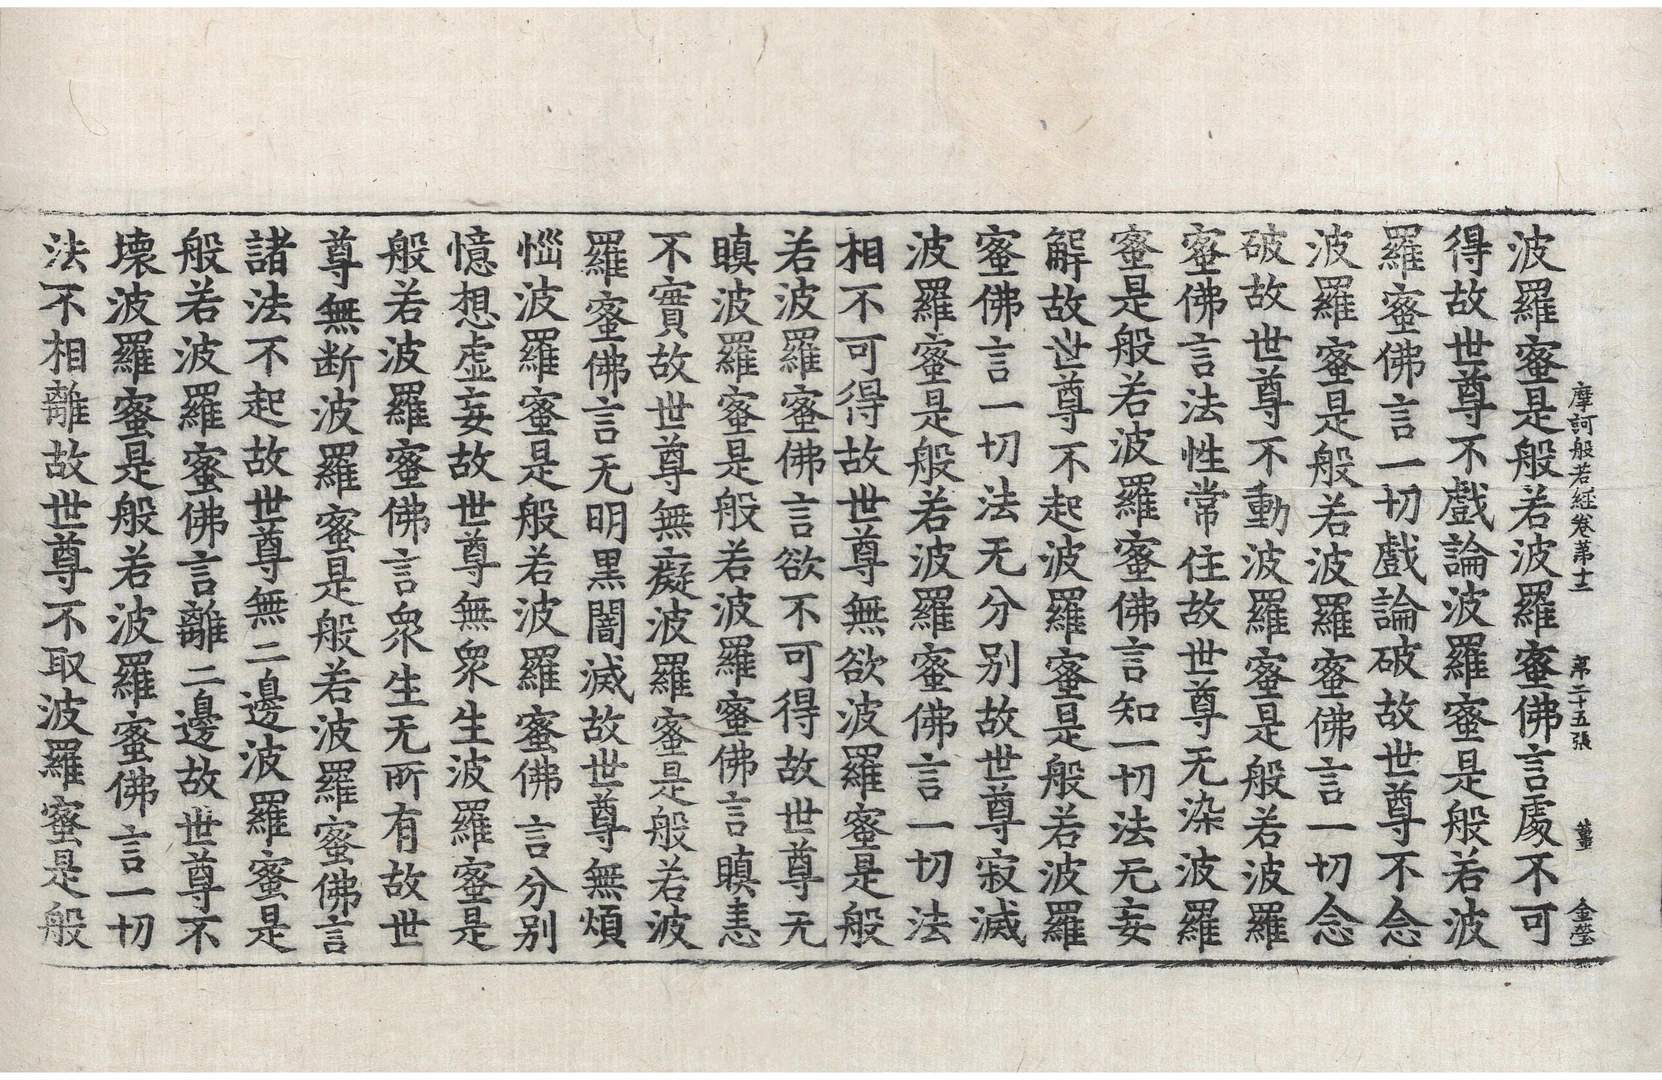 摩訶般若経巻第十二 第二十五張 薑 金瑩
波羅蜜是般若波羅蜜佛言處不可
得故世尊不戲論波羅蜜是般若波
羅蜜佛言一切戲論破故世尊不念
波羅蜜是般若波羅蜜佛言一切念
破故世尊不動波羅蜜是般若波羅
蜜佛言法性常住故世尊无染波羅
蜜是般若波羅蜜佛言知一切法无妄
解故世尊不起波羅蜜是般若波羅
蜜佛言一切法无分别故世尊寂滅
波羅蜜是般若波羅蜜佛言一切法
相不可得故世尊無欲波羅蜜是般
若波羅蜜佛言欲不可得故世尊无
瞋波羅蜜是般若波羅蜜佛言瞋恚
不實故世尊無癡波羅蜜是般若波
羅蜜佛言无明黒闇滅故世尊無煩
惱波羅蜜是般若波羅蜜佛言分别
憶想虚妄故世尊無衆生波羅蜜是
般若波羅蜜佛言衆生无所有故世
尊無断波羅蜜是般若波羅蜜佛言
諸法不起故世尊無二邊波羅蜜是
般若波羅蜜佛言離二邊故世尊不
壊波羅蜜是般若波羅蜜佛言一切
法不相離故世尊不取波羅蜜是般